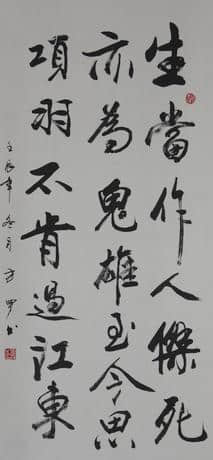 生當作人傑死
亦為鬼雄至今思
項羽不肯過江東
壬辰年冬月方书